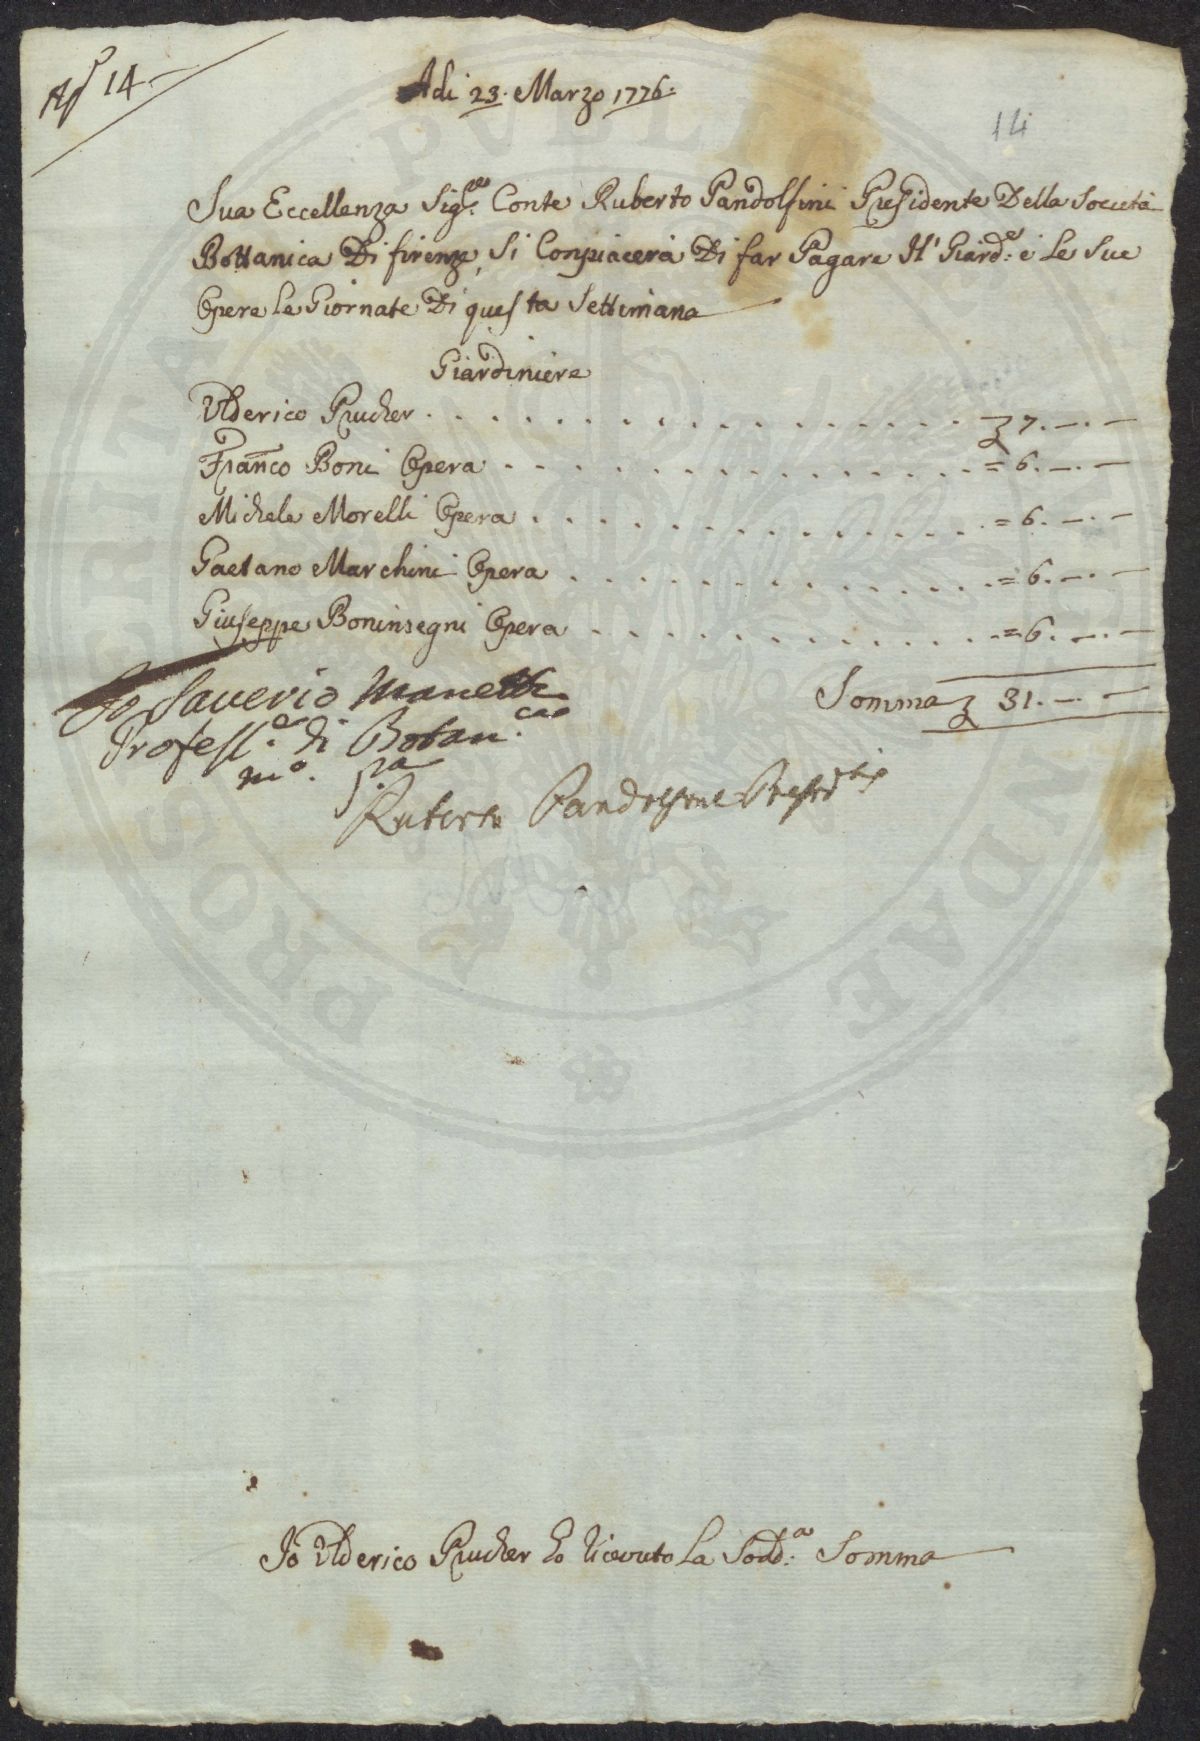 Ap.^r 14
Adi 23. Marzo 1776.
14
Sua Eccellenza Sig.^re Conte Ruberto Pandolfini Presidente Della Società
Bottanica Di firenze, Si Conpiacerà Di far Pagare Il' Giard.^e e Le Sue
Opere Le Giornate Di questa Settimana
Giardiniere
Ulderico Prucher . . . . . . . . . . . . . . . . . . ʒ 7. — . —
Fran.co Boni Opera . . . . . . . . . . . . . . . = 6. — . —
Michele Morelli Opera . . . . . . . . . . . . . . = 6. — . —
Gaetano Marchini Opera . . . . . . . . . . . . . = 6. — . —
Giuseppe Boninsegni Opera . . . . . . . . . . . . = 6. — . —
Somma ʒ 31. — . —
Io Saverio Manetti
Profess.^e di Botan.^ca
m.^o p.^a
Ruberto Pandolfini Presid.^te
Io Ulderico Prucher ho ricevuto La Sodd.^a Somma
PROSPERITATI PUBLICAE AUGENDAE